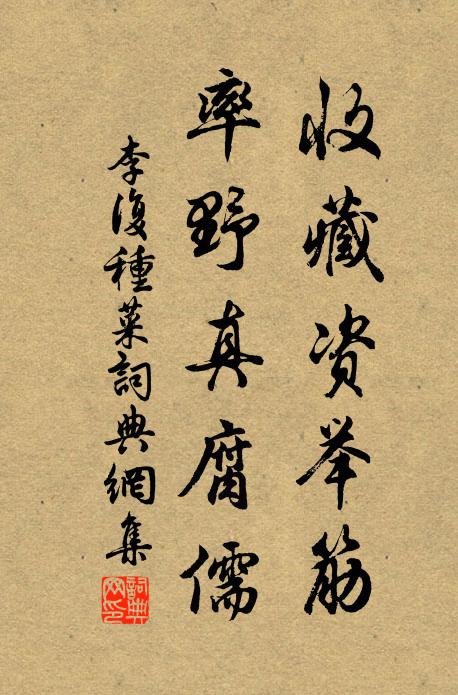 收藏资举筋
率野真腐儒
李復種菜詞典網集
詞典
网印